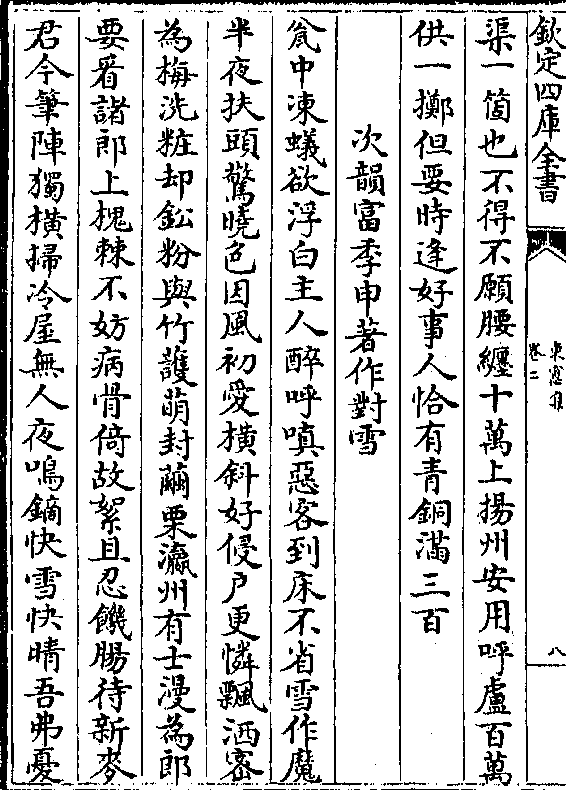 欽定四庫全書
東窓集
卷二
八
渠一箇也不得不願腰纏十萬上揚州安用呼盧百萬
供一擲但要時逢好事人恰有青銅滿三百
次韻富季申著作對雪
瓮中凍蟻欲浮白主人醉呼嗔惡客到床不省雪作魔
半夜扶頭驚曉色因風初愛橫斜好侵户更憐飄洒密
為梅洗粧却鉛粉與竹護萌封繭栗瀛州有士漫為郎
要看諸郎上槐棘不妨病骨倚故絮且忍饑腸待新麥
君今筆陣獨橫掃冷屋無人夜鳴鏑快雪快晴吾弗憂